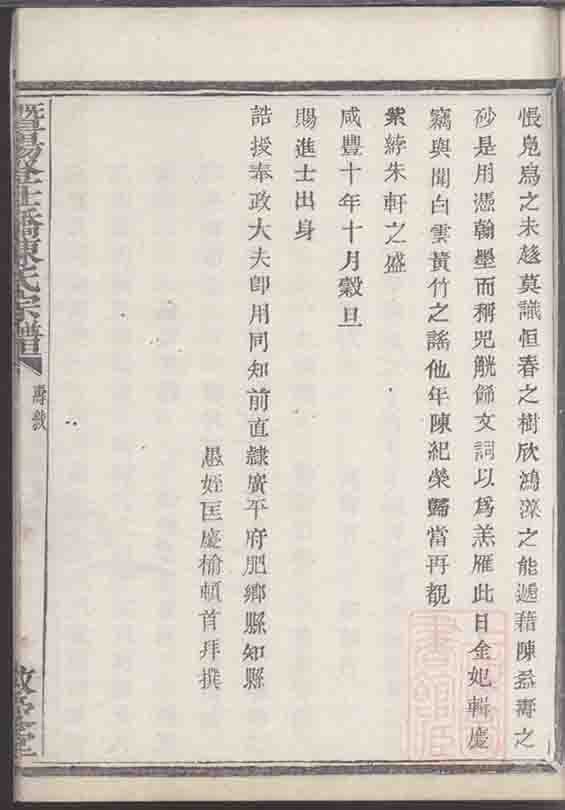 悵鳧舄之未趍莫識恒春之樹欣鴻藻之能遞藉陳益壽之
砂是用憑翰墨而稱兕觥餙文詞以爲羔雁此日金妃輯慶
竊與聞白雲黃竹之謠他年陳紀榮歸當再覩
紫綍朱軒之盛
咸豐十年十月榖旦
賜進士出身
誥授奉政大夫卽用同知前直隷廣平府肥鄉縣知縣
愚姪匡慶榆頓首拜撰
暨陽 橋陳氏宗譜
壽敘